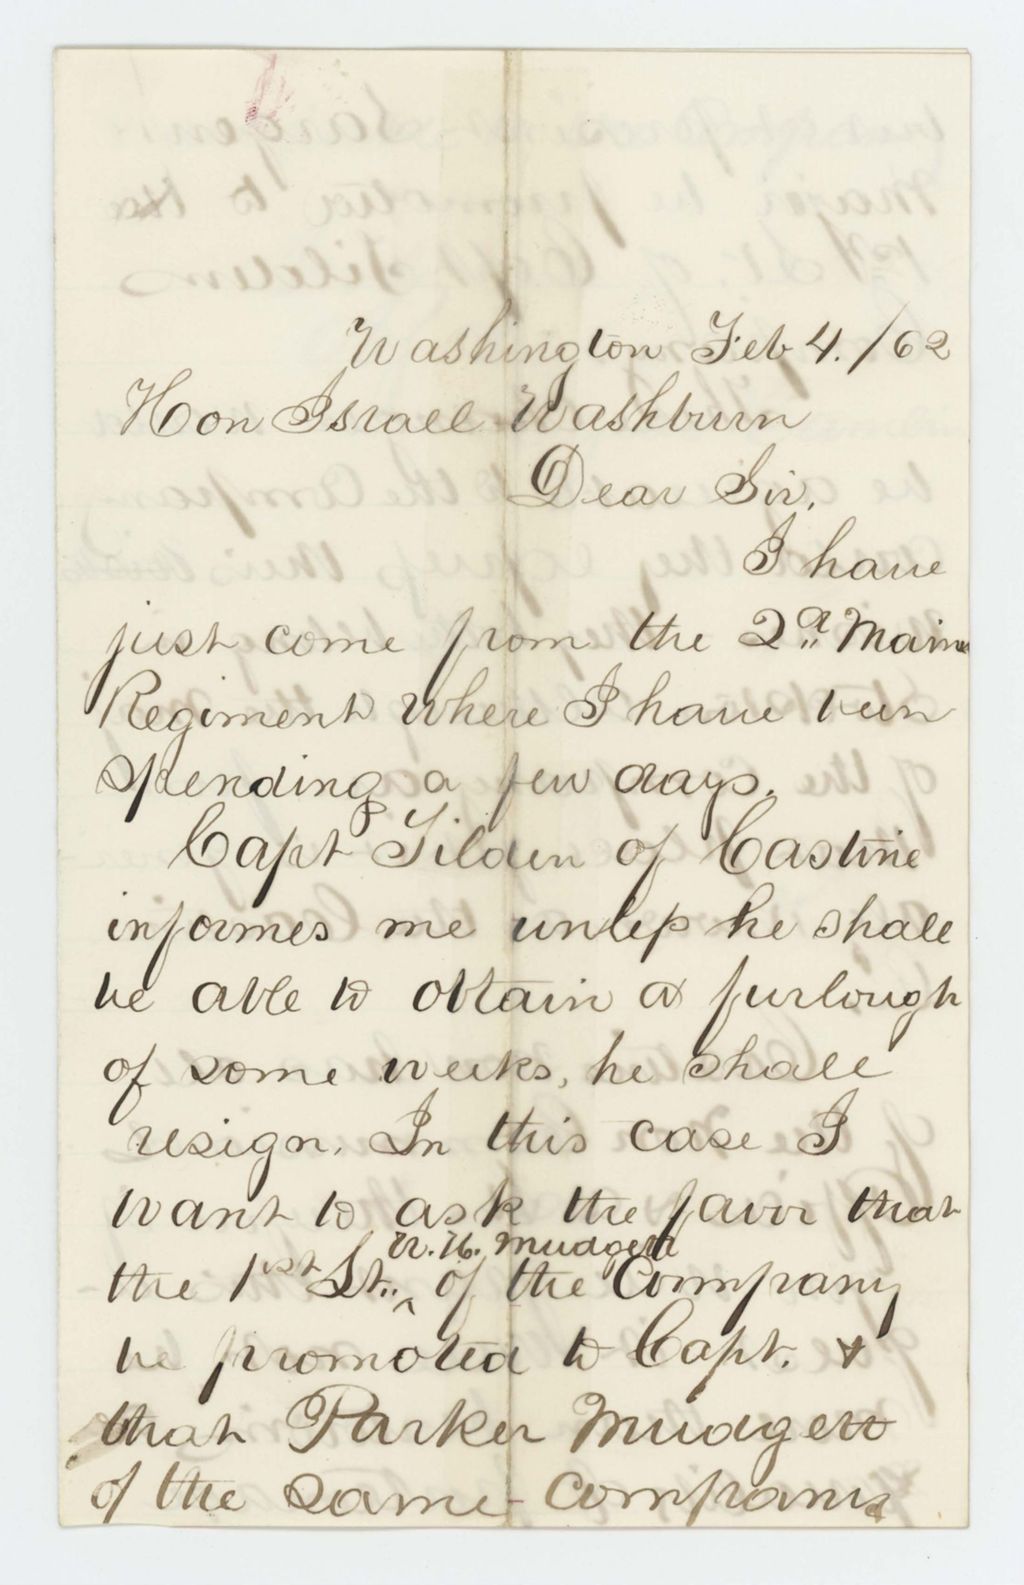 Washington Feb 4. /62
Hon Israel Washburn
Dear Sir,
I have
just come from the 2d Maine
Regiment where I have been
spending a few days.
Capt Tilden of Castine
informes me unless he shall
be able to obtain a furlough
of some weeks, he shall
resign. In this case I
want to ask the favor that
W. H. Mudgett
the 1st Lt. ^ of the Company
be promoted to Capt. &
that Parker Mudgett
of the same company